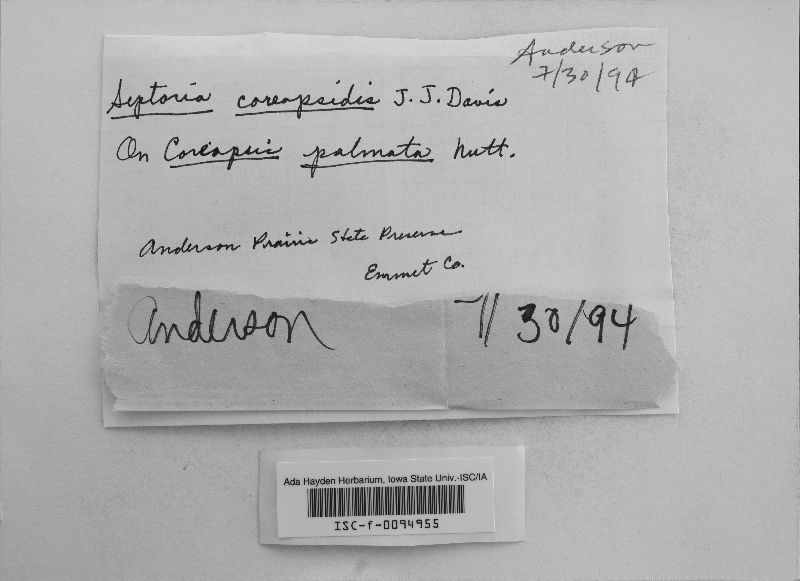 Anderson
7/30/94
Septoria coreopsidis J. J. Davis
On Coreopsis palmata Nutt.
Anderson Prairie State Preserve
Emmet Co.
Anderson 7/30/94
Ada Hayden Herbarium, Iowa State Univ.-ISC/IA
ISC-f-0094955